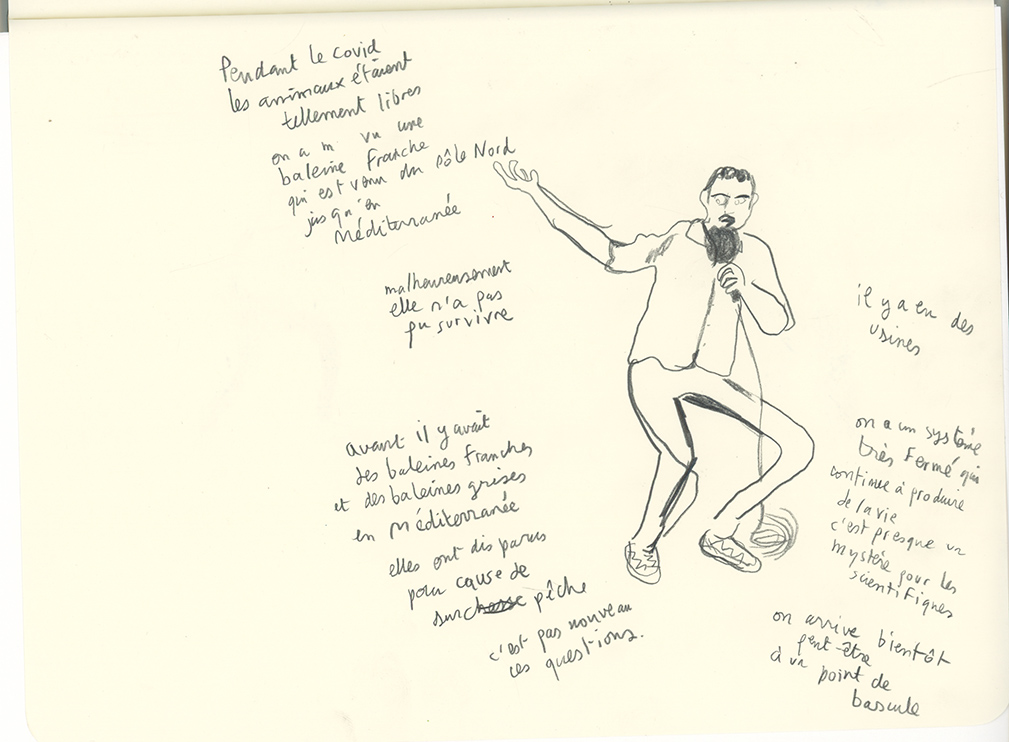 Pendant le covid
les animaux étaient
tellement libres
on a m vu une
baleine franche
qui est venu du Pôle Nord
jusqu'en
Méditerranée
malheureusement
elle n'a pas
pu survivre
avant il y avait
des baleines franches
et des baleines grises
en Méditerranée
elles ont disparus
pour cause de
surchasse pêche
c'est pas nouveau
ces questions.
il y a eu des
usines
on a un système
très fermé qui
continue à produire
de la vie
c'est presque un
mystère pour les
scientifiques
on arrive bientôt
peut-être
à un point de
bascule